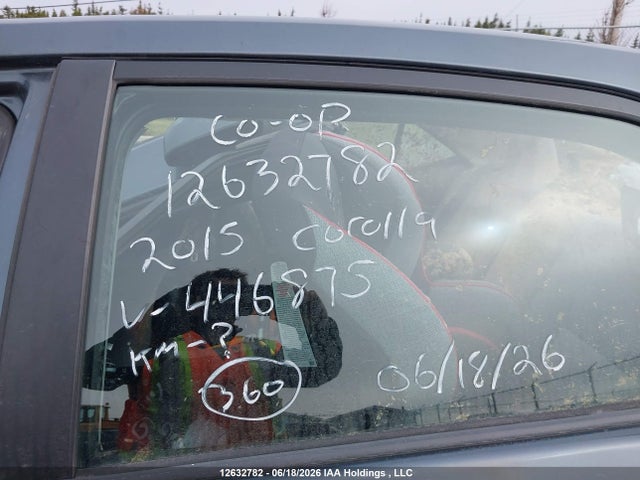 CO-OP
12632782
2015 Corolla
V-446875
Km-?
360
06/18/26
12632782 - 06/18/2026 IAA Holdings , LLC